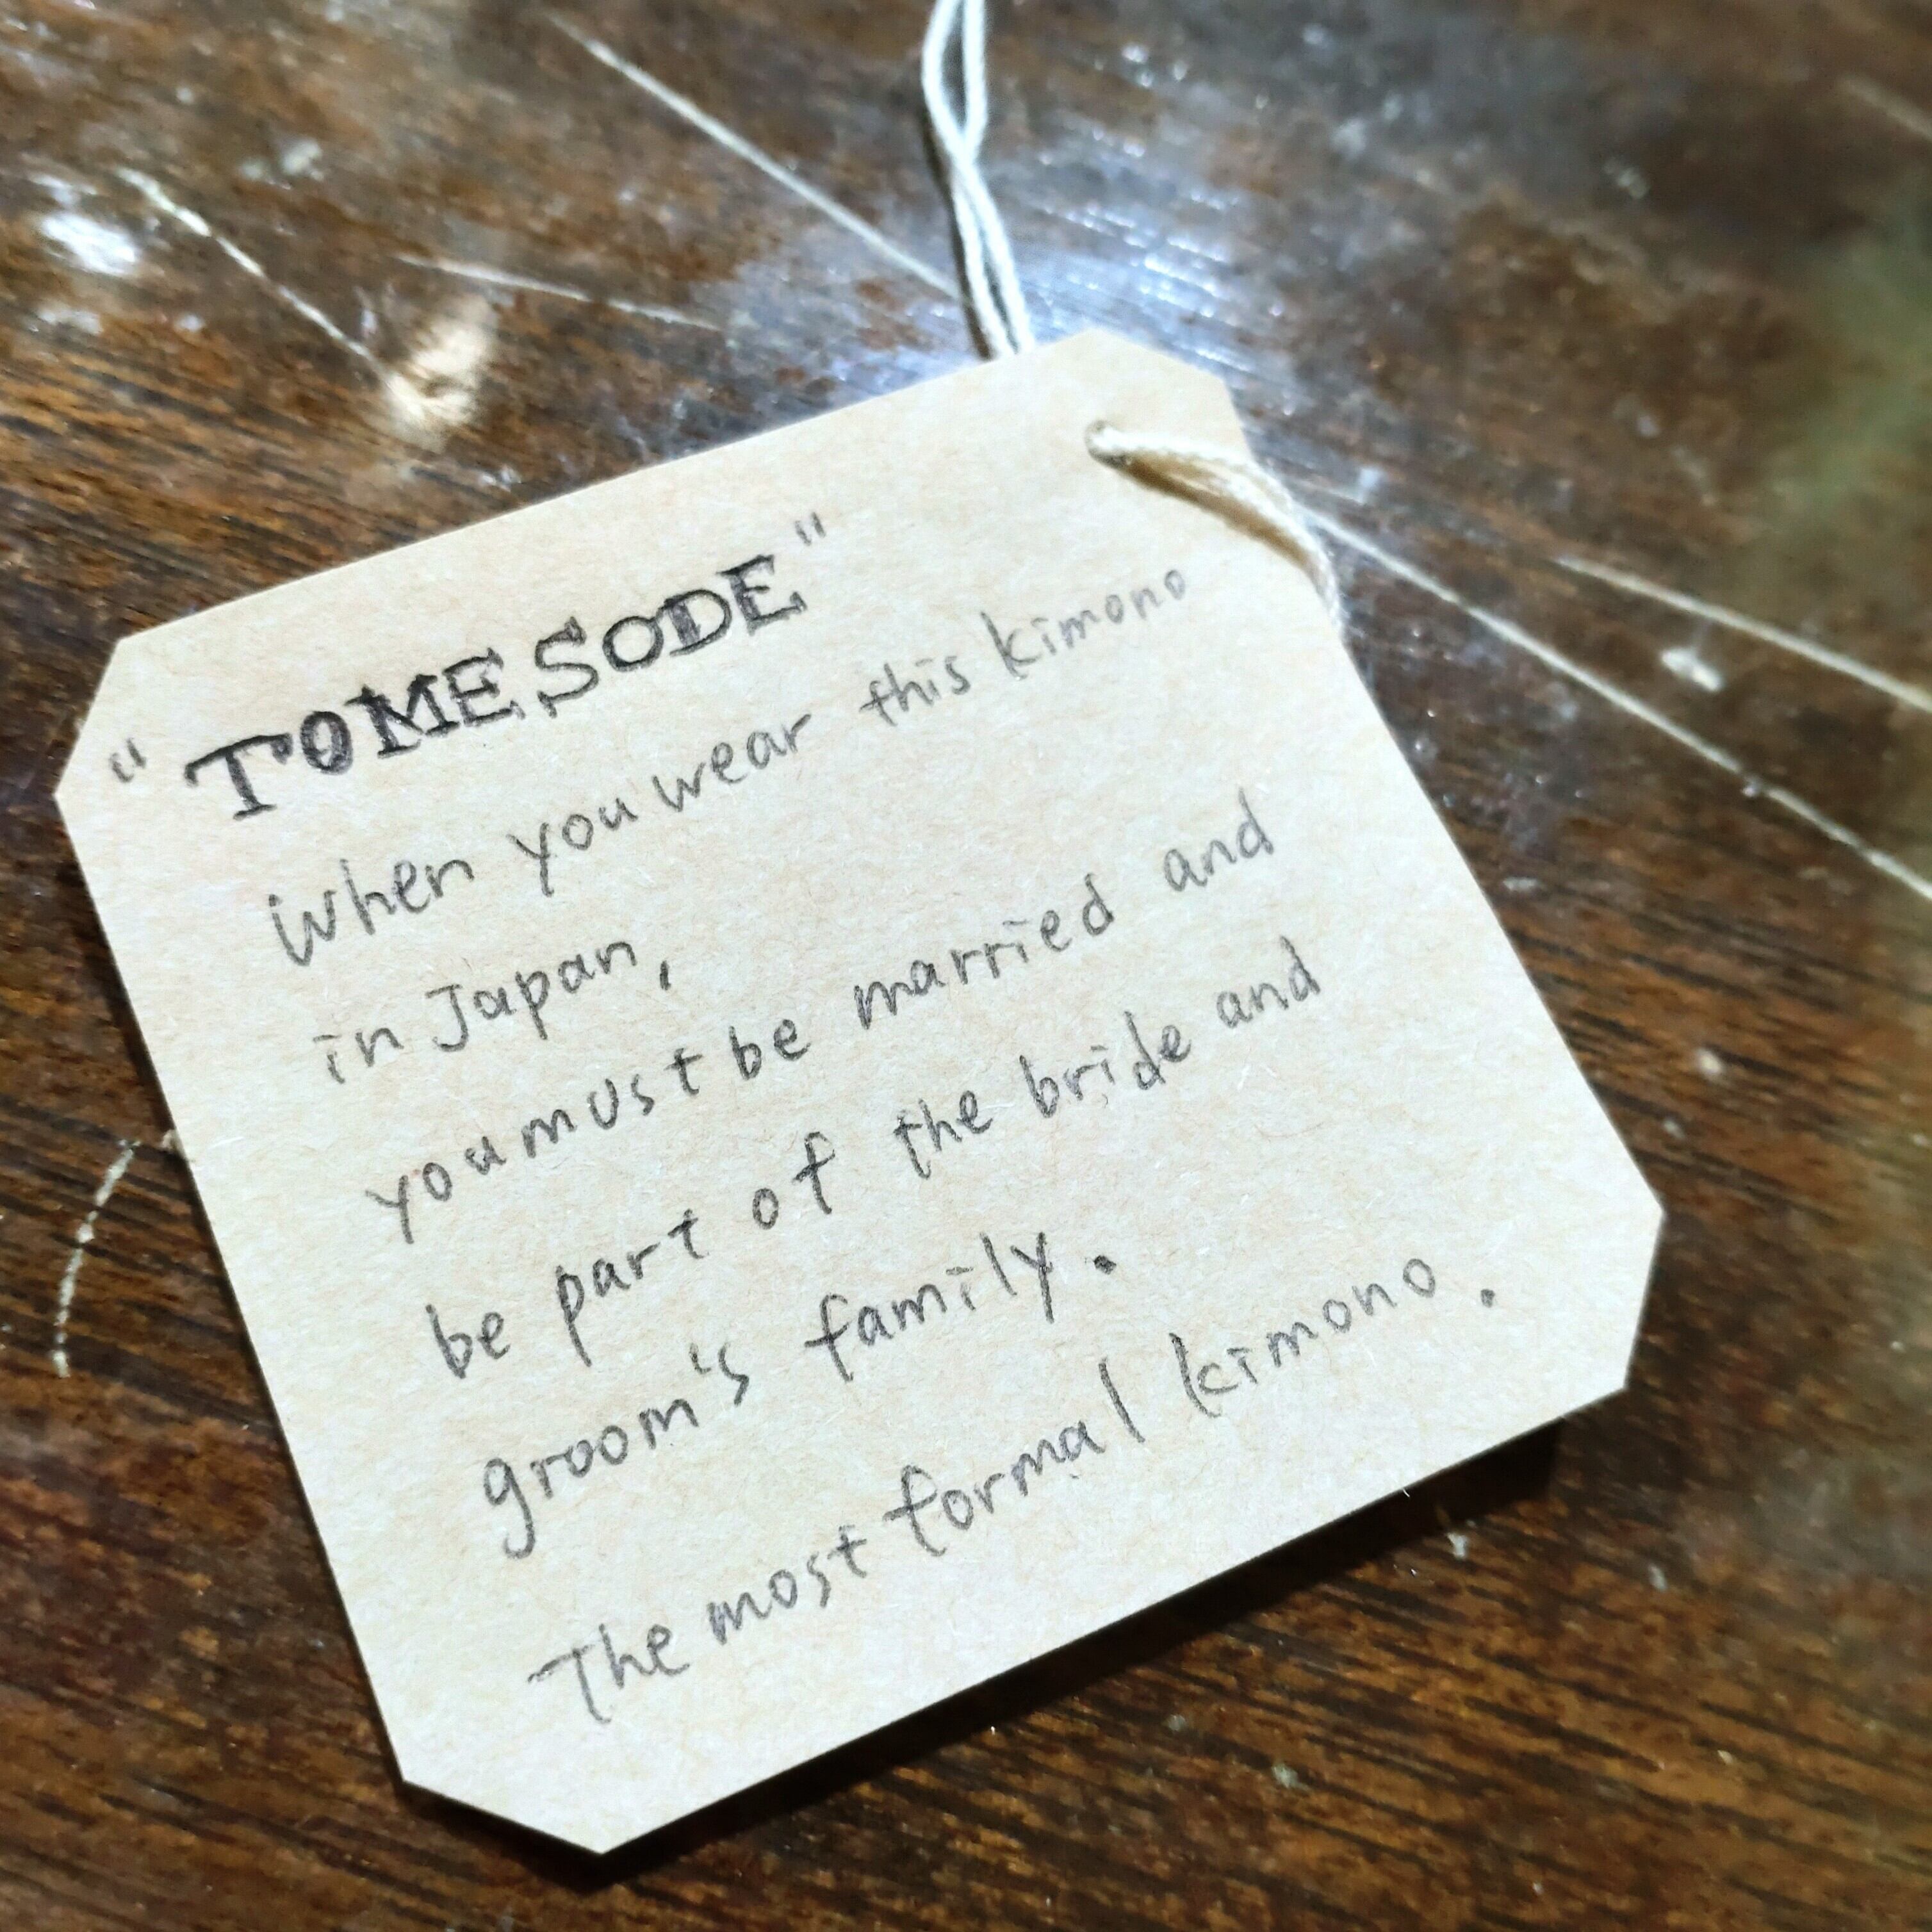 "TOMESODE"
When you wear this kimono
in Japan,
you must be married and
be part of the bride and
groom's family.
The most formal kimono.